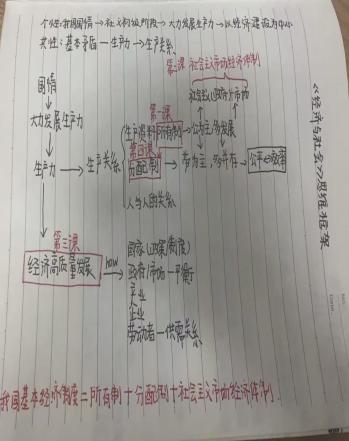 个性:我国国情→社会初级阶段→大力发展生产力→以经济建设为中心
共性:基本矛盾—生产力→生产关系
第二课 社会主义市场经济体制
国情
大力发展生产力
生产力→生产关系
第一课
生产资料所有制→公为主,多发展
第四课
分配制→劳为主,多并存→公平⇔效率
人与人的关系
《经济与社会》思维框架
第三课
经济高质量发展
how
国家(政策/制度)
政府/市场—平衡
产业
企业
劳动者—供需关系
我国基本经济制度=所有制+分配制+社会主义市场经济体制